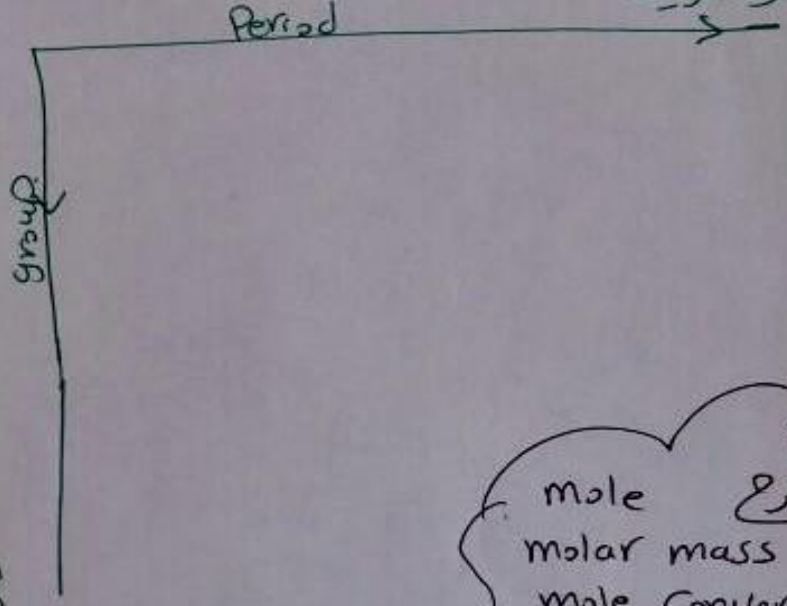 Period
group
mole
molar mass
mole